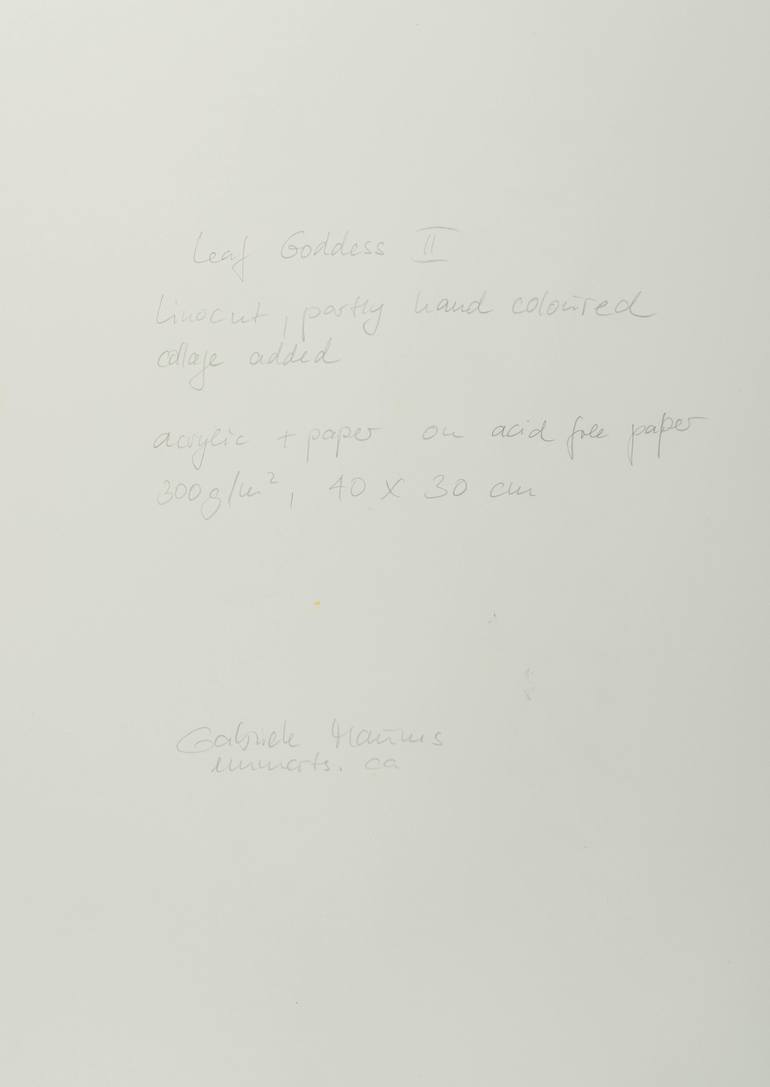 Leaf Goddess II
Linocut, partly hand coloured
collage added
acrylic + paper on acid free paper
300g/m², 40 x 30 cm
Gabriele Maurus